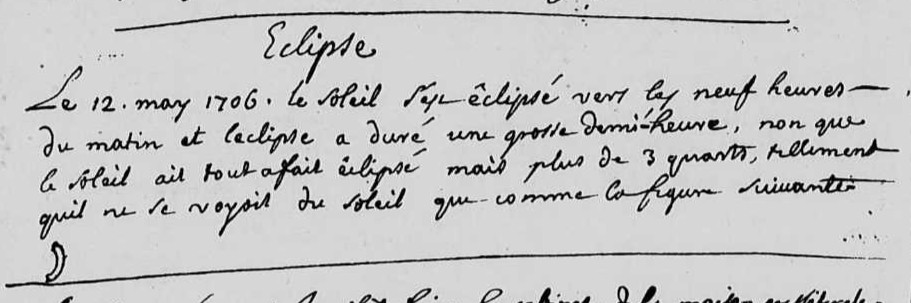 Eclipse
Le 12. may 1706. le soleil s'est êclipsé vers les neuf heures
du matin et leclipse a duré une grosse demi-heure, non que
le soleil ait tout a fait êclipsé mais plus de 3 quarts, tellement
quil ne se voyoit du soleil que comme la figure suivante
de la maison